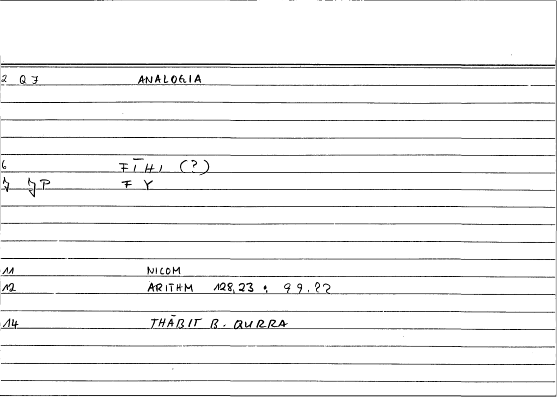 2 Q7 ANALOGIA
6 FĪHI (?)
P F Y
11 NICOM
12 ARITHM 128,23 : 99.??
14 THĀBIT B. QURRA